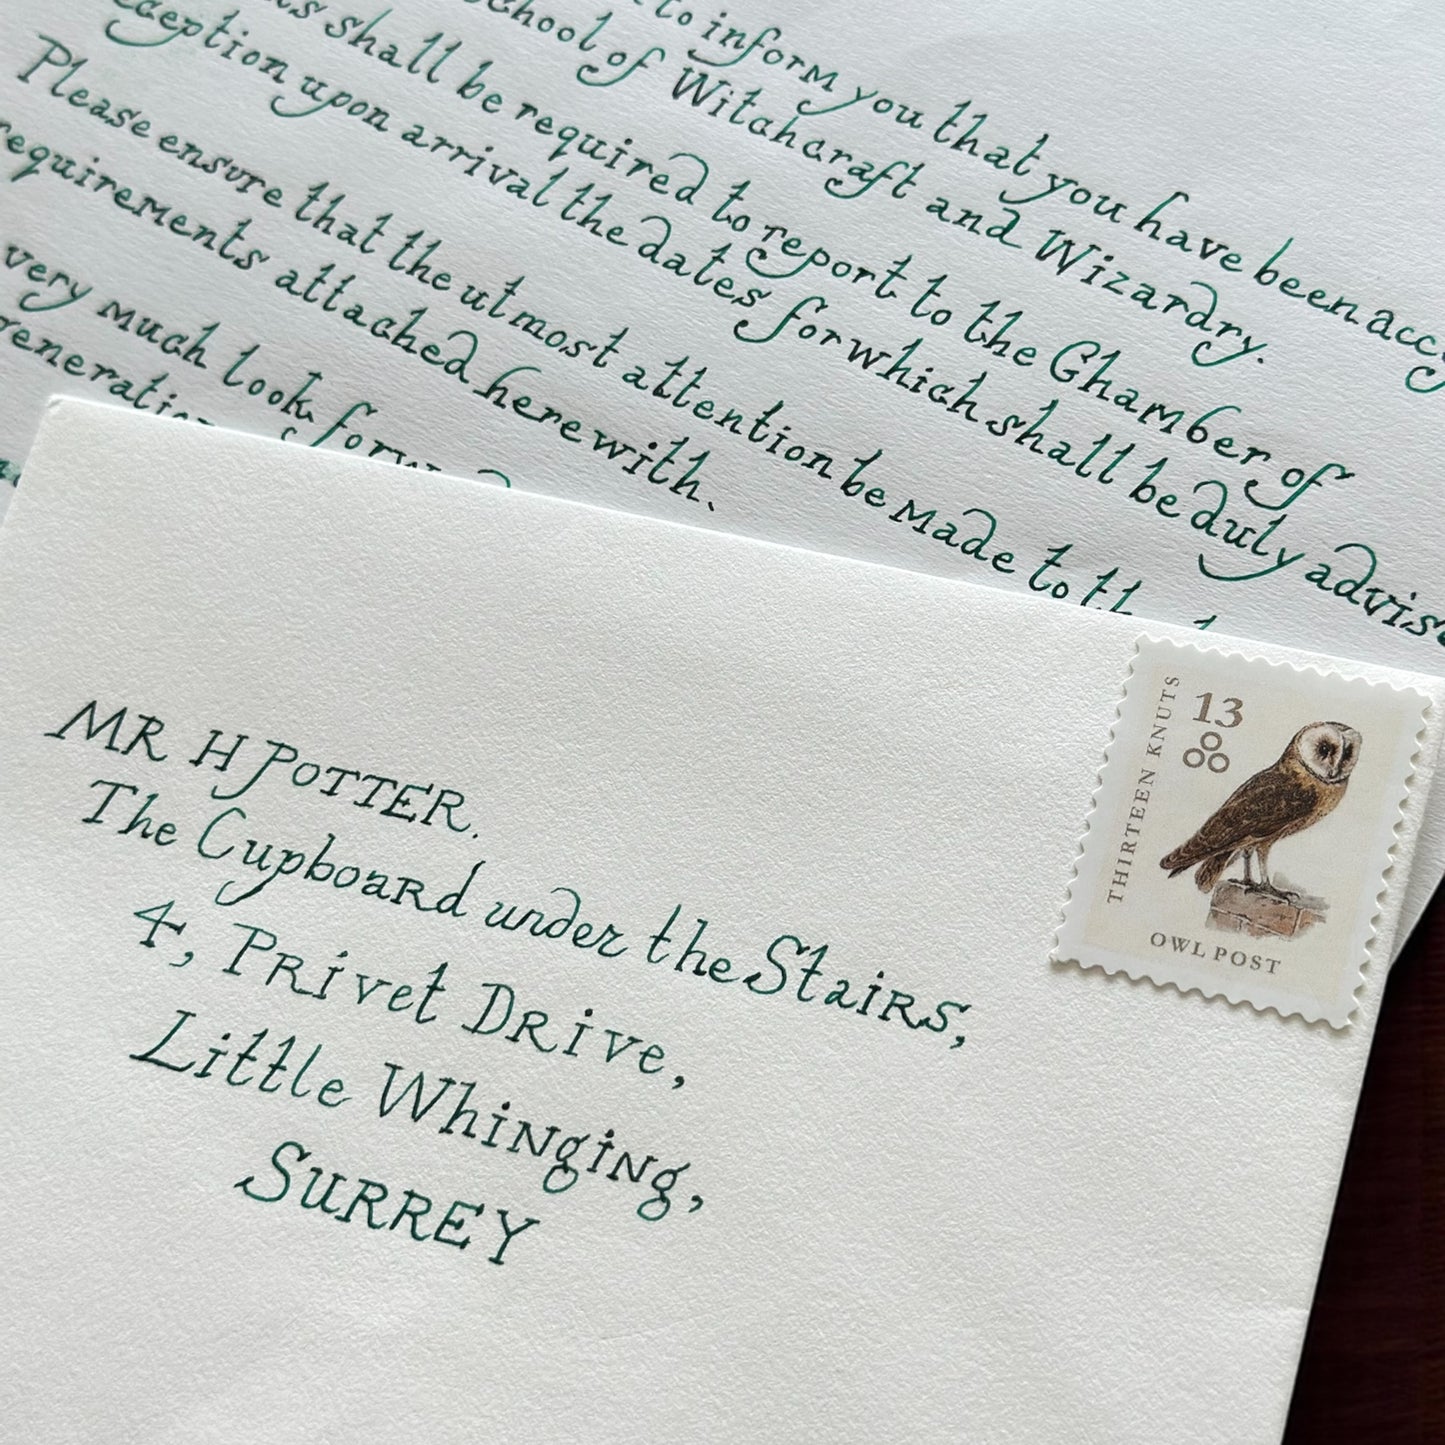 to inform you that you have been acc
School of Witchcraft and Wizardry.
shall be required to report to the Chamber of
ception upon arrival the dates for which shall be duly advise
Please ensure that the utmost attention be made to th
requirements attached herewith.
very much look forw
MR H POTTER.
The Cupboard under the Stairs,
4, Privet Drive,
Little Whinging,
SURREY
13
THIRTEEN KNUTS
OWL POST